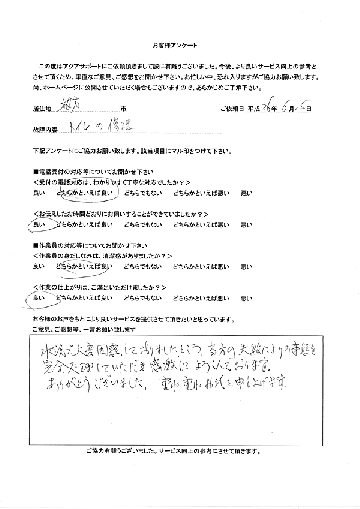 お客様アンケート
この度はアクアサポートにご依頼頂きまして誠に有難うございました。今後、より良いサービス向上の参考と
させて頂くため、率直なご意見、ご感想をお聞かせ下さい。お忙しい中、恐れ入りますがご協力お願い致します。
尚、ホームページに公開させていただく場合もございますので、あらかじめご了承下さい。
市 ご依頼日 平成 26年 6月 日
故障内容 トイレの修理
下記アンケートにご協力お願い致します。該当項目にマル印をつけて下さい。
■電話受付の対応等についてお聞かせ下さい
＜受付の電話対応は、わかりやすく丁寧な対応でしたか？＞
良い どちらかといえば良い どちらでもない どちらかといえば悪い 悪い
＜お伝えしたお時間どおりにお伺いすることができていましたか？＞
良い どちらかといえば良い どちらでもない どちらかといえば悪い 悪い
■作業員の対応等についてお聞かせ下さい
＜作業員の身だしなみは、清潔感がありましたか？＞
良い どちらかといえば良い どちらでもない どちらかといえば悪い 悪い
＜作業の仕上がりは、ご満足いただけましたか？＞
良い どちらかといえば良い どちらでもない どちらかといえば悪い 悪い
お客様のお声をもとにより良いサービスを提供させて頂きたいと思っています。
ご意見、ご感想等、一言お願い致します
大変困惑して居りましたところ、貴方の
完全に していただき感謝して
ありがとうございました。重ね重ね お礼を申し上げます
ご協力有難うございました。サービス向上の参考にさせて頂きます。